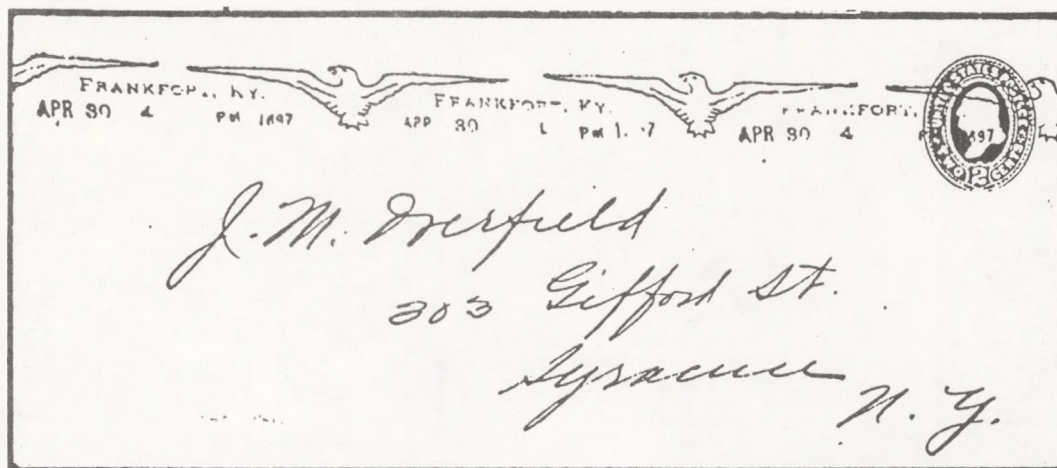 FRANKFORT, KY. FRANKFORT, KY. FRANKFORT,
APR 30 4 PM 1897 APR 30 4 PM 1897 APR 30 4 PM 1897
UNITED STATES POSTAGE
TWO 2 CENTS
J. M. Overfield
303 Gifford St.
Syracuse
N. Y.